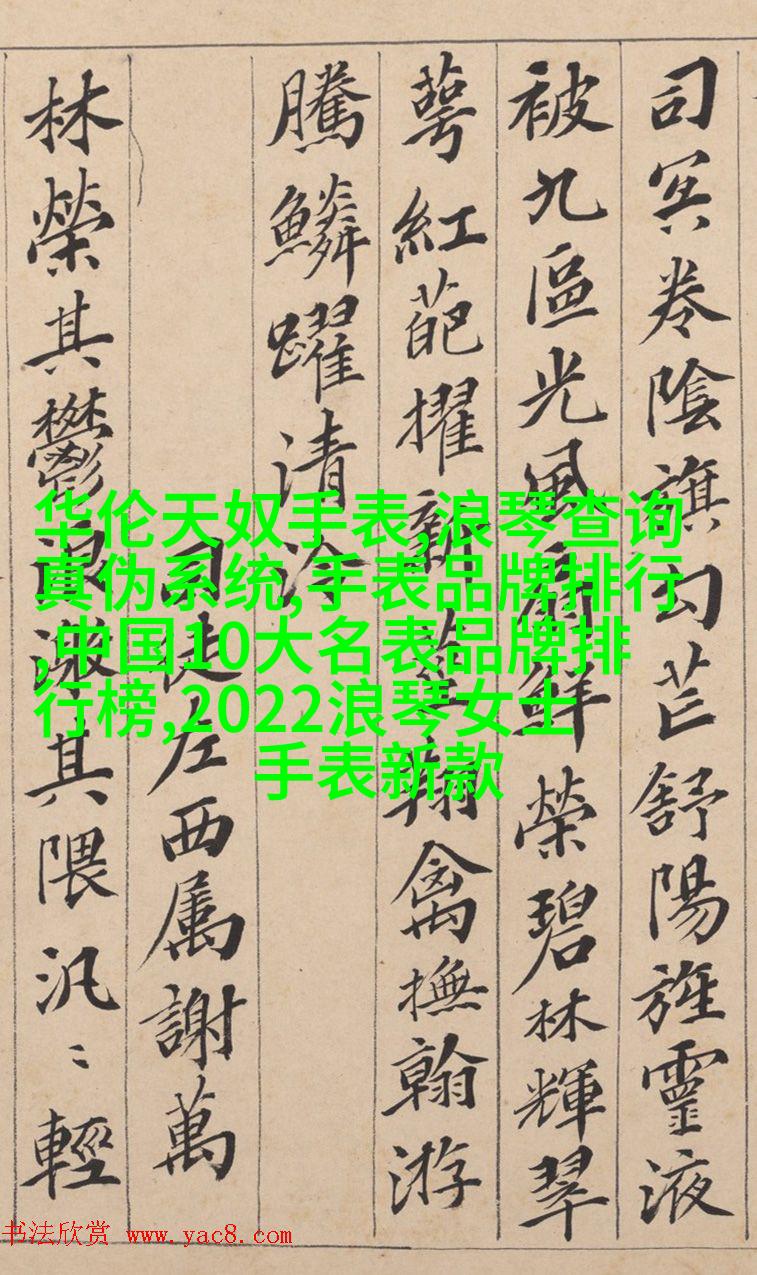 司冥卷陰旗勾芒舒陽旌靈液
被九區光風扇鮮榮碧林輝翠
萼紅葩擢新莖翔禽撫翰游
騰鱗躍清泠
司徒左西属謝萬
林榮其鬱浪激其隈汎〻輕
华伦天奴手表,浪琴查询
真伪系统,手表品牌排行
,中国10大名表品牌排
行榜,2022浪琴女士
手表新款
书法欣赏 www.yac8.com